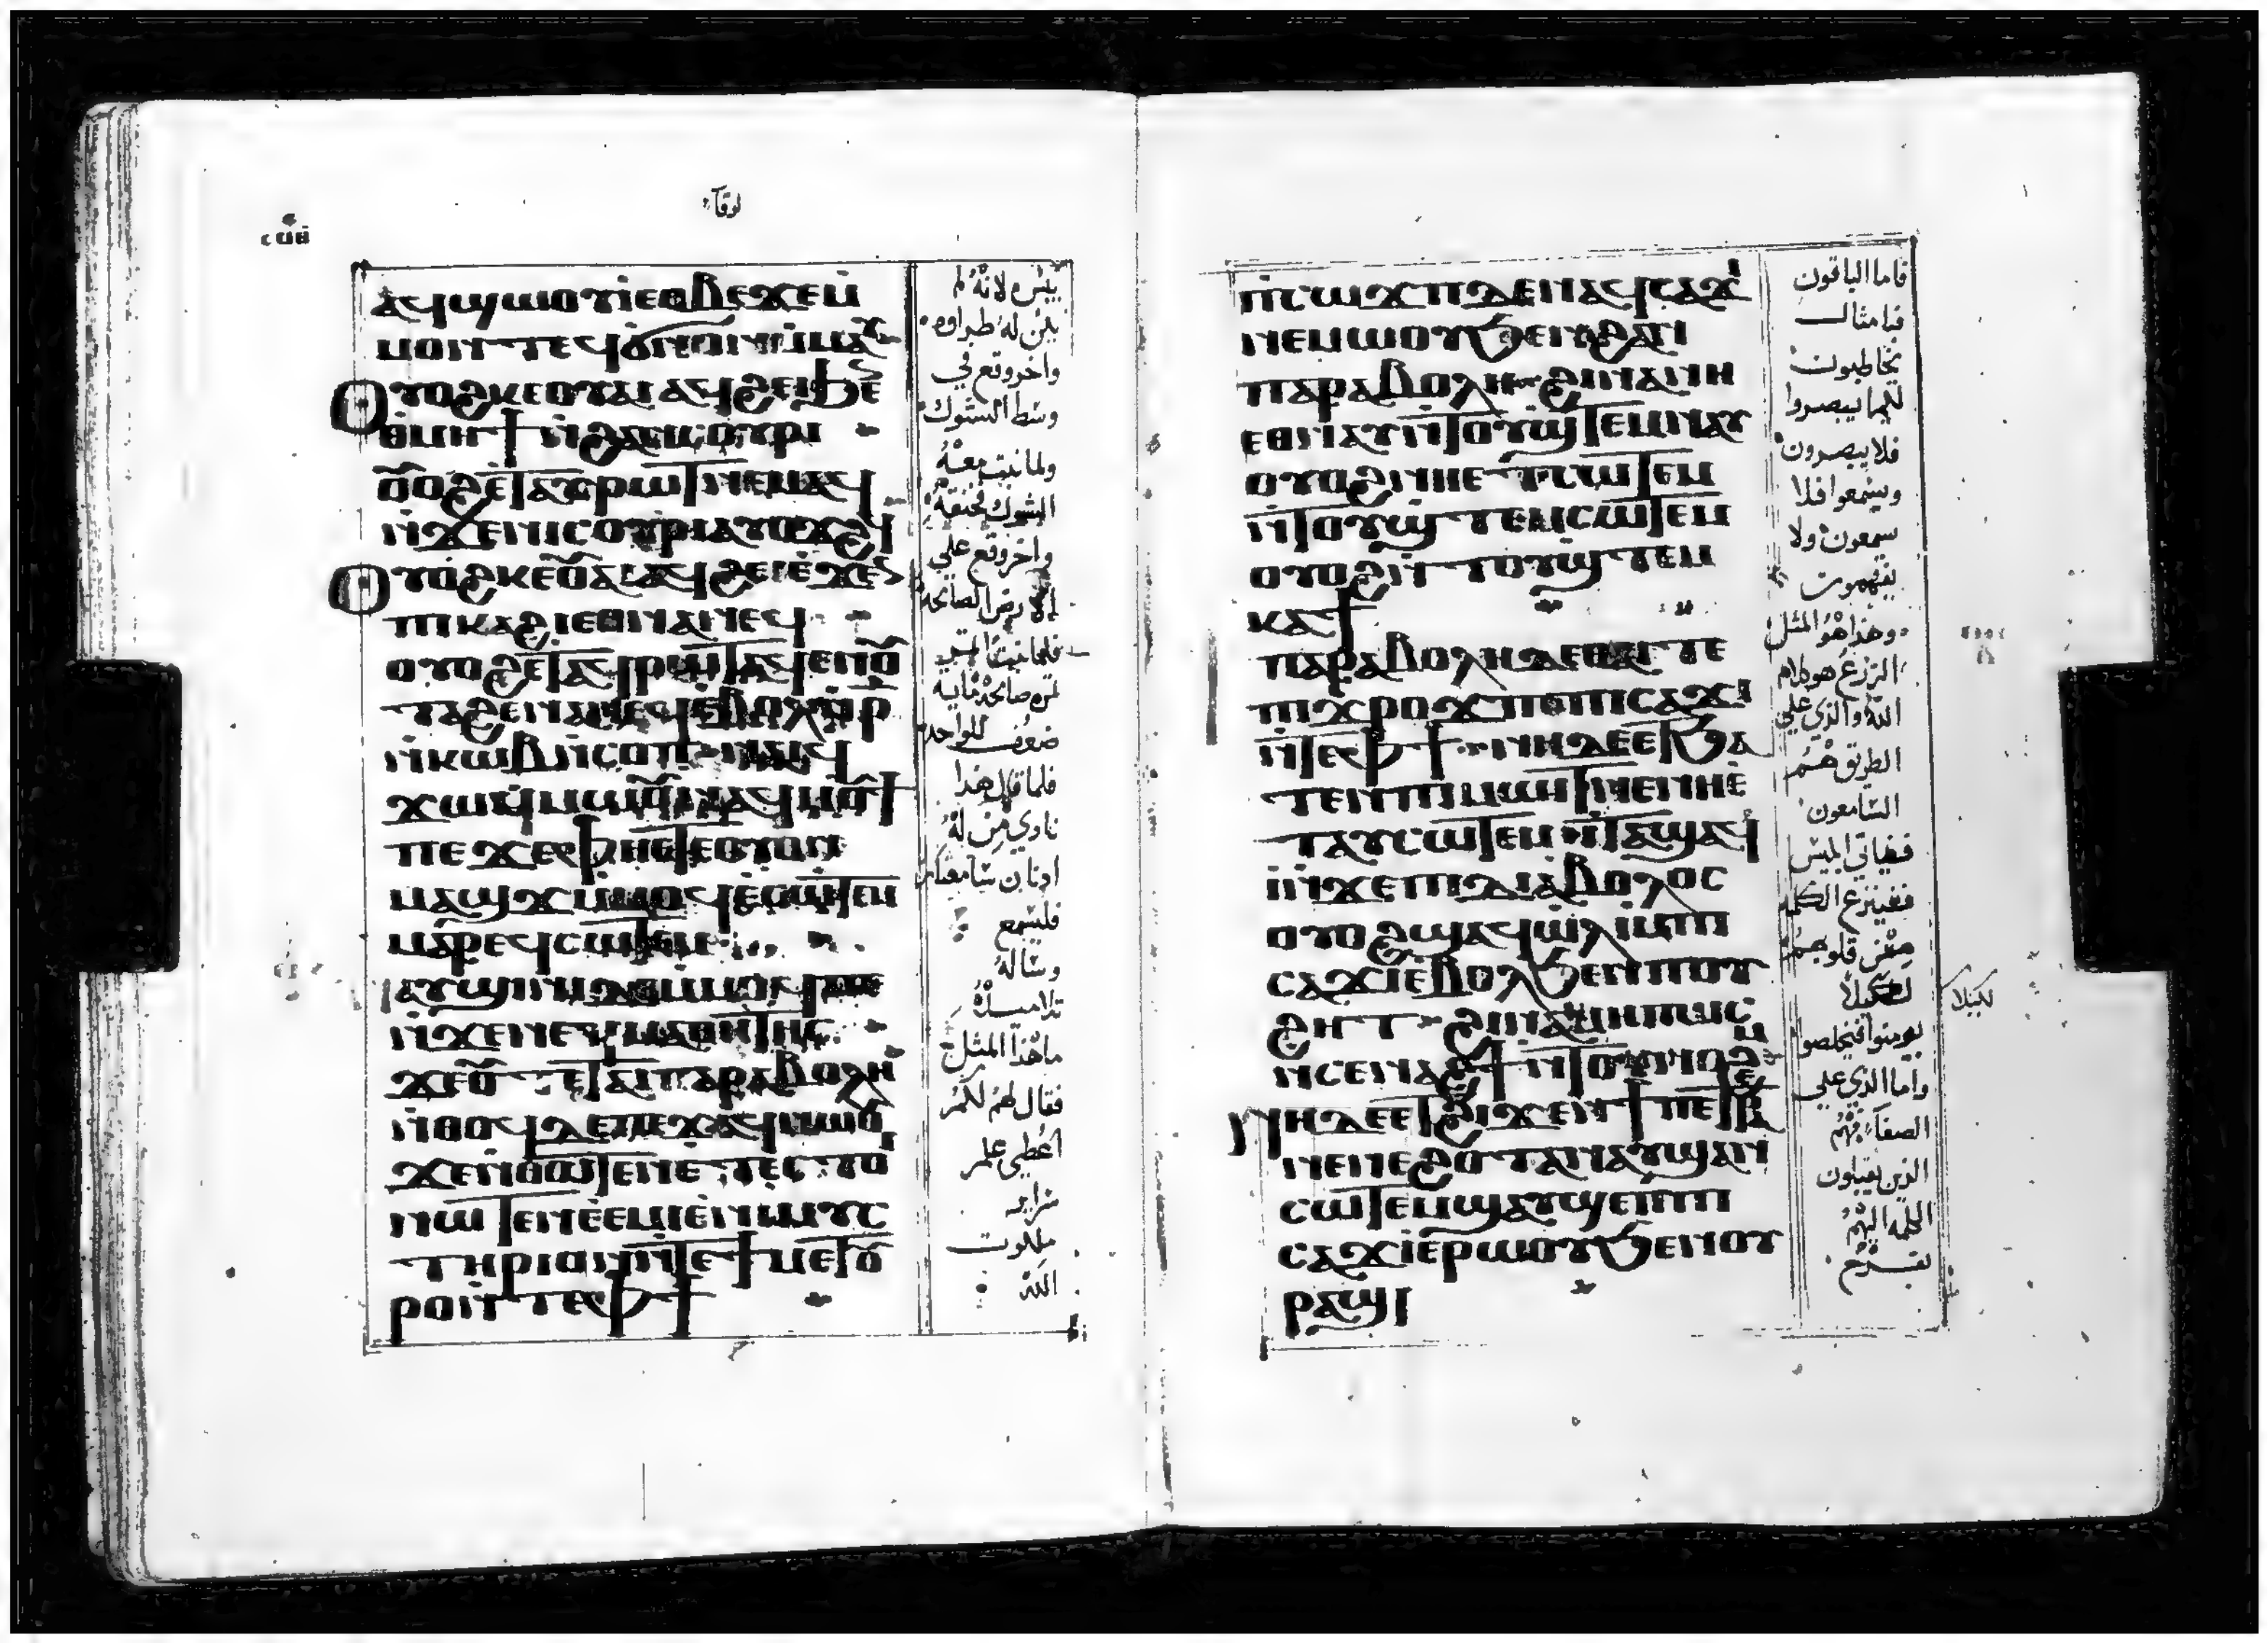 لوقا
ⲥⲟⲃ
ⲁϥϣⲱⲟⲩⲓ ⲉⲑⲃⲉϫⲉⲙ
ⲙⲟⲛⲧⲉϥ ϭⲛⲟⲛ ⲙⲙⲁⲩ
Ⲟⲩⲟϩ ⲕⲉⲟⲩⲁⲓ ⲁϥϩⲉⲓ ϧⲉ
ⲑⲙⲏϯ ⲛϩⲁⲛⲥⲟⲩⲣⲓ
ⲟⲩⲟϩ ⲉⲧⲁⲩⲣⲱⲧ ⲛⲉⲙⲁϥ
ⲛϫⲉⲛⲓⲥⲟⲩⲣⲓ ⲁⲩⲟϫϩϥ
Ⲟⲩⲟϩ ⲕⲉⲟⲩⲁⲓ ⲁϥϩⲉⲓ ⲉϫⲉ
ⲡⲓⲕⲁϩⲓ ⲉⲑⲛⲁⲛⲉϥ
ⲟⲩⲟϩ ⲉⲧⲁϥⲣⲱⲧ ⲁϥⲉⲛⲟⲩ
ⲧⲁϩ ⲉⲛⲁⲛⲉϥ ⲉⲃⲟⲗ ⲛⲣ
ⲛⲕⲱⲃ ⲛⲥⲟⲡ ⲛⲁⲓ ⲉϥ
ϫⲱ ⲙⲙⲱⲟⲩ ⲛⲁϥⲙⲟⲩϯ
ⲡⲉ ϫⲉ ⲫⲏⲉⲧⲉ ⲟⲩⲟⲛ
ⲙⲁϣϫ ⲙⲙⲟϥ ⲉⲥⲱⲧⲉⲙ
ⲙⲁⲣⲉϥⲥⲱⲧⲉⲙ
ⲛⲁⲩϣⲓⲛⲓ ⲇⲉ ⲙⲙⲟϥ ⲡⲉ
ⲛϫⲉⲛⲉϥⲙⲁⲑⲏⲧⲏⲥ
ϫⲉ ⲟⲩ ⲧⲉ ⲧⲁⲓⲡⲁⲣⲁⲃⲟⲗⲏ
ⲛⲑⲟϥ ⲇⲉ ⲡⲉϫⲁϥ ⲛⲱⲟⲩ
ϫⲉ ⲛⲑⲱⲧⲉⲛ ⲡⲉⲧⲉⲥⲧⲟⲓ
ⲛⲱⲧⲉⲛ ⲉⲉⲙⲓ ⲉⲛⲓⲙⲩⲥ
ⲧⲏⲣⲓⲟⲛ ⲛⲧⲉϯⲙⲉⲧⲟⲩ
ⲣⲟ ⲛⲧⲉ ⲫϯ
يبس لانه لم
يكن له طراوه
واخر وقع في
وسط الشوك
ولما نبت معه
الشوك خنقه
واخر وقع علي
الارض الصالحه
فلما نبت اتي
ثمره صالحه مايه
ضعف للواحد
فلما قال هذا
نادي من له
ادنان سامعتان
فليسمع
وساله
تلاميده
ما هذا المثل
فقال لهم لكم
اعطي علم
سراير
ملكوت
الله
ⲡⲥⲱϫⲡ ⲇⲉ ⲛⲁϥⲥⲁϫⲓ
ⲛⲉⲙⲱⲟⲩ ϧⲉⲛ ϩⲁⲛ
ⲡⲁⲣⲁⲃⲟⲗⲏ ϩⲓⲛⲁ ⲛⲏ
ⲉⲑⲛⲁⲩ ⲛⲧⲟⲩϣⲧⲉⲙⲛⲁⲩ
ⲟⲩⲟϩ ⲛⲏⲉⲧⲥⲱⲧⲉⲙ
ⲛⲧⲟⲩϣⲧⲉⲙⲥⲱⲧⲉⲙ
ⲟⲩⲟϩ ⲛⲧⲟⲩϣⲧⲉⲙ
ⲕⲁϯ
ⲡⲁⲣⲁⲃⲟⲗⲏ ⲇⲉ ⲑⲁⲓ ⲧⲉ
ⲡⲓϫⲣⲟϫ ⲡⲉ ⲡⲓⲥⲁϫⲓ
ⲛⲧⲉ ⲫϯ ⲛⲏ ⲇⲉ ⲉⲧϧⲁ
ⲧⲉⲛ ⲡⲓⲙⲱⲓⲧ ⲛⲉ ⲛⲏⲉ
ⲧⲁⲩⲥⲱⲧⲉⲙ ⲛⲧⲁϣⲁϥⲓ
ⲛϫⲉⲡⲓⲇⲓⲁⲃⲟⲗⲟⲥ
ⲟⲩⲟϩ ϣⲁϥⲱⲗⲓ ⲙⲡⲓ
ⲥⲁϫⲓ ⲉⲃⲟⲗ ϧⲉⲛ ⲡⲟⲩ
ϩⲏⲧ ϩⲓⲛⲁ ⲙⲏⲡⲱⲥ
ⲛⲥⲉⲛⲁϩϯ ⲛⲧⲟⲩⲛⲟϩⲉⲙ
Ⲛⲏ ⲇⲉ ⲉⲧϩⲓϫⲉⲛ ϯⲡⲉⲧⲣⲁ
ⲛⲉ ⲛⲉϩⲟⲧⲁⲛ ⲁⲩϣⲁⲛ
ⲥⲱⲧⲉⲙ ϣⲁⲩϣⲉⲡ ⲡⲓ
ⲥⲁϫⲓ ⲉⲣⲱⲟⲩ ϧⲉⲛ ⲟⲩ
ⲣⲁϣⲓ
فاما الباقون
فبامثال
يخاطبون
لكيما يبصروا
فلا يبصرون
ويسمعوا فلا
يسمعون ولا
يفهمون
وهذا هو المثل
الزرع هو كلام
الله والذي علي
الطريق هم
السامعون
فياتي ابليس
فينزع الكلمه
من قلوبهم
لكيلا
لكيلا
يومنوا فيخلصوا
واما الذي علي
الصفا فهم
الذين يقبلون
الكلمه اليهم
بفرح